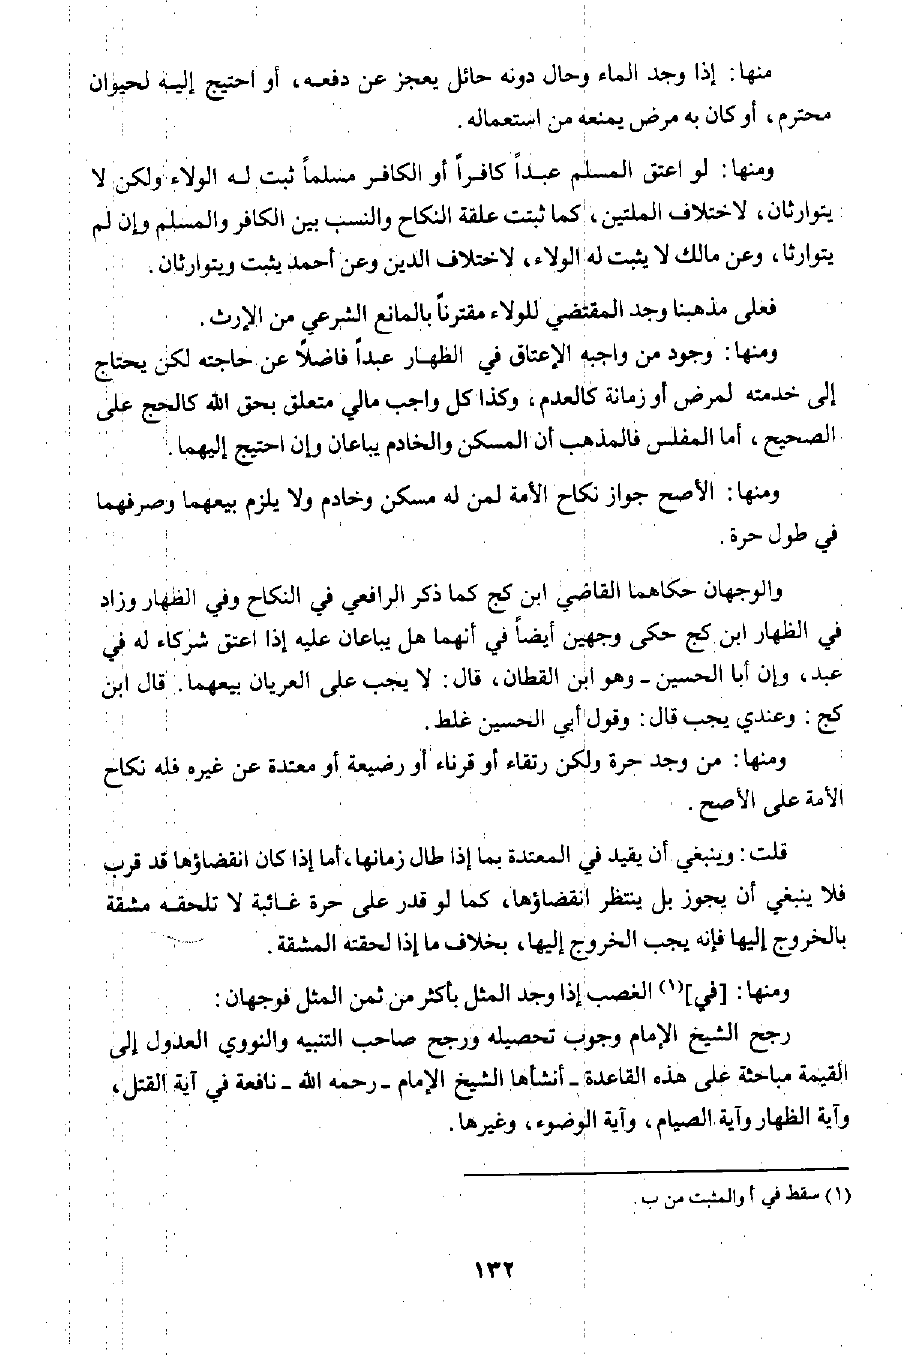 منها: إذا وجد الماء وحال دونه حائل يعجز عن دفعه، أو احتيج إليه لحيوان
محترم، أو كان به مرض يمنعه من استعماله.
ومنها: لو اعتق المسلم عبداً كافراً أو الكافر مسلماً ثبت له الولاء ولكن لا
يتوارثان، لاختلاف الملتين، كما ثبتت علقة النكاح والنسب بين الكافر والمسلم وإن لم
يتوارثا، وعن مالك لا يثبت له الولاء، لاختلاف الدين وعن أحمد يثبت ويتوارثان.
فعلى مذهبنا وجد المقتضي للولاء مقترناً بالمانع الشرعي من الإرث.
ومنها: وجود من واجبه الإعتاق في الظهار عبداً فاضلاً عن حاجته لكن يحتاج
إلى خدمته لمرض أو زمانة كالعدم، وكذا كل واجب مالي متعلق بحق الله كالحج على
الصحيح، أما المفلس فالمذهب أن المسكن والخادم يباعان وإن احتيج إليهما.
ومنها: الأصح جواز نكاح الأمة لمن له مسكن وخادم ولا يلزم بيعهما وصرفهما
في طول حرة.
والوجهان حكاهما القاضي ابن كج كما ذكر الرافعي في النكاح وفي الظهار وزاد
في الظهار ابن كج حكى وجهين أيضاً في أنهما هل يباعان عليه إذا اعتق شركاء له في
عبد، وإن أبا الحسين ـ وهو ابن القطان، قال: لا يجب على العريان بيعهما. قال ابن
كج: وعندي يجب قال: وقول أبي الحسين غلط.
ومنها: من وجد حرة ولكن رتقاء أو قرناء أو رضيعة أو معتدة عن غيره فله نكاح
الأمة على الأصح.
قلت: وينبغي أن يقيد في المعتدة بما إذا طال زمانها، أما إذا كان انقضاؤها قد قرب
فلا ينبغي أن يجوز بل ينتظر انقضاؤها، كما لو قدر على حرة غائبة لا تلحقه مشقة
بالخروج إليها فإنه يجب الخروج إليها، بخلاف ما إذا لحقته المشقة.
ومنها: [في](١) الغصب إذا وجد المثل بأكثر من ثمن المثل فوجهان:
رجح الشيخ الإمام وجوب تحصيله ورجح صاحب التنبيه والنووي العدول إلى
القيمة مباحثة على هذه القاعدة ـ أنشأها الشيخ الإمام ـ رحمه الله ـ نافعة في آية القتل،
وآية الظهار وآية الصيام، وآية الوضوء، وغيرها.
(١) سقط في أ والمثبت من ب.
١٣٢